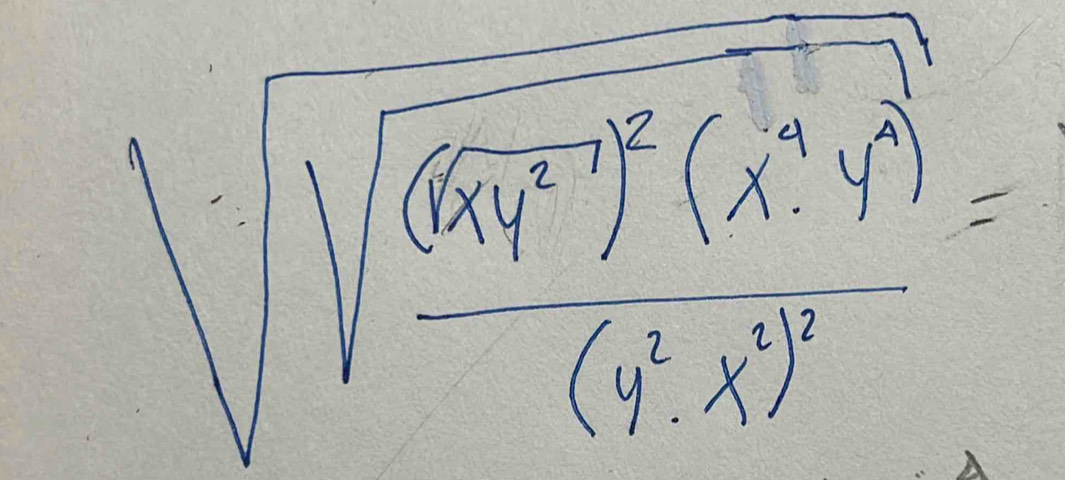 √√((√xy²)² (x⁴ · y⁴) / (y² · x²)²) =